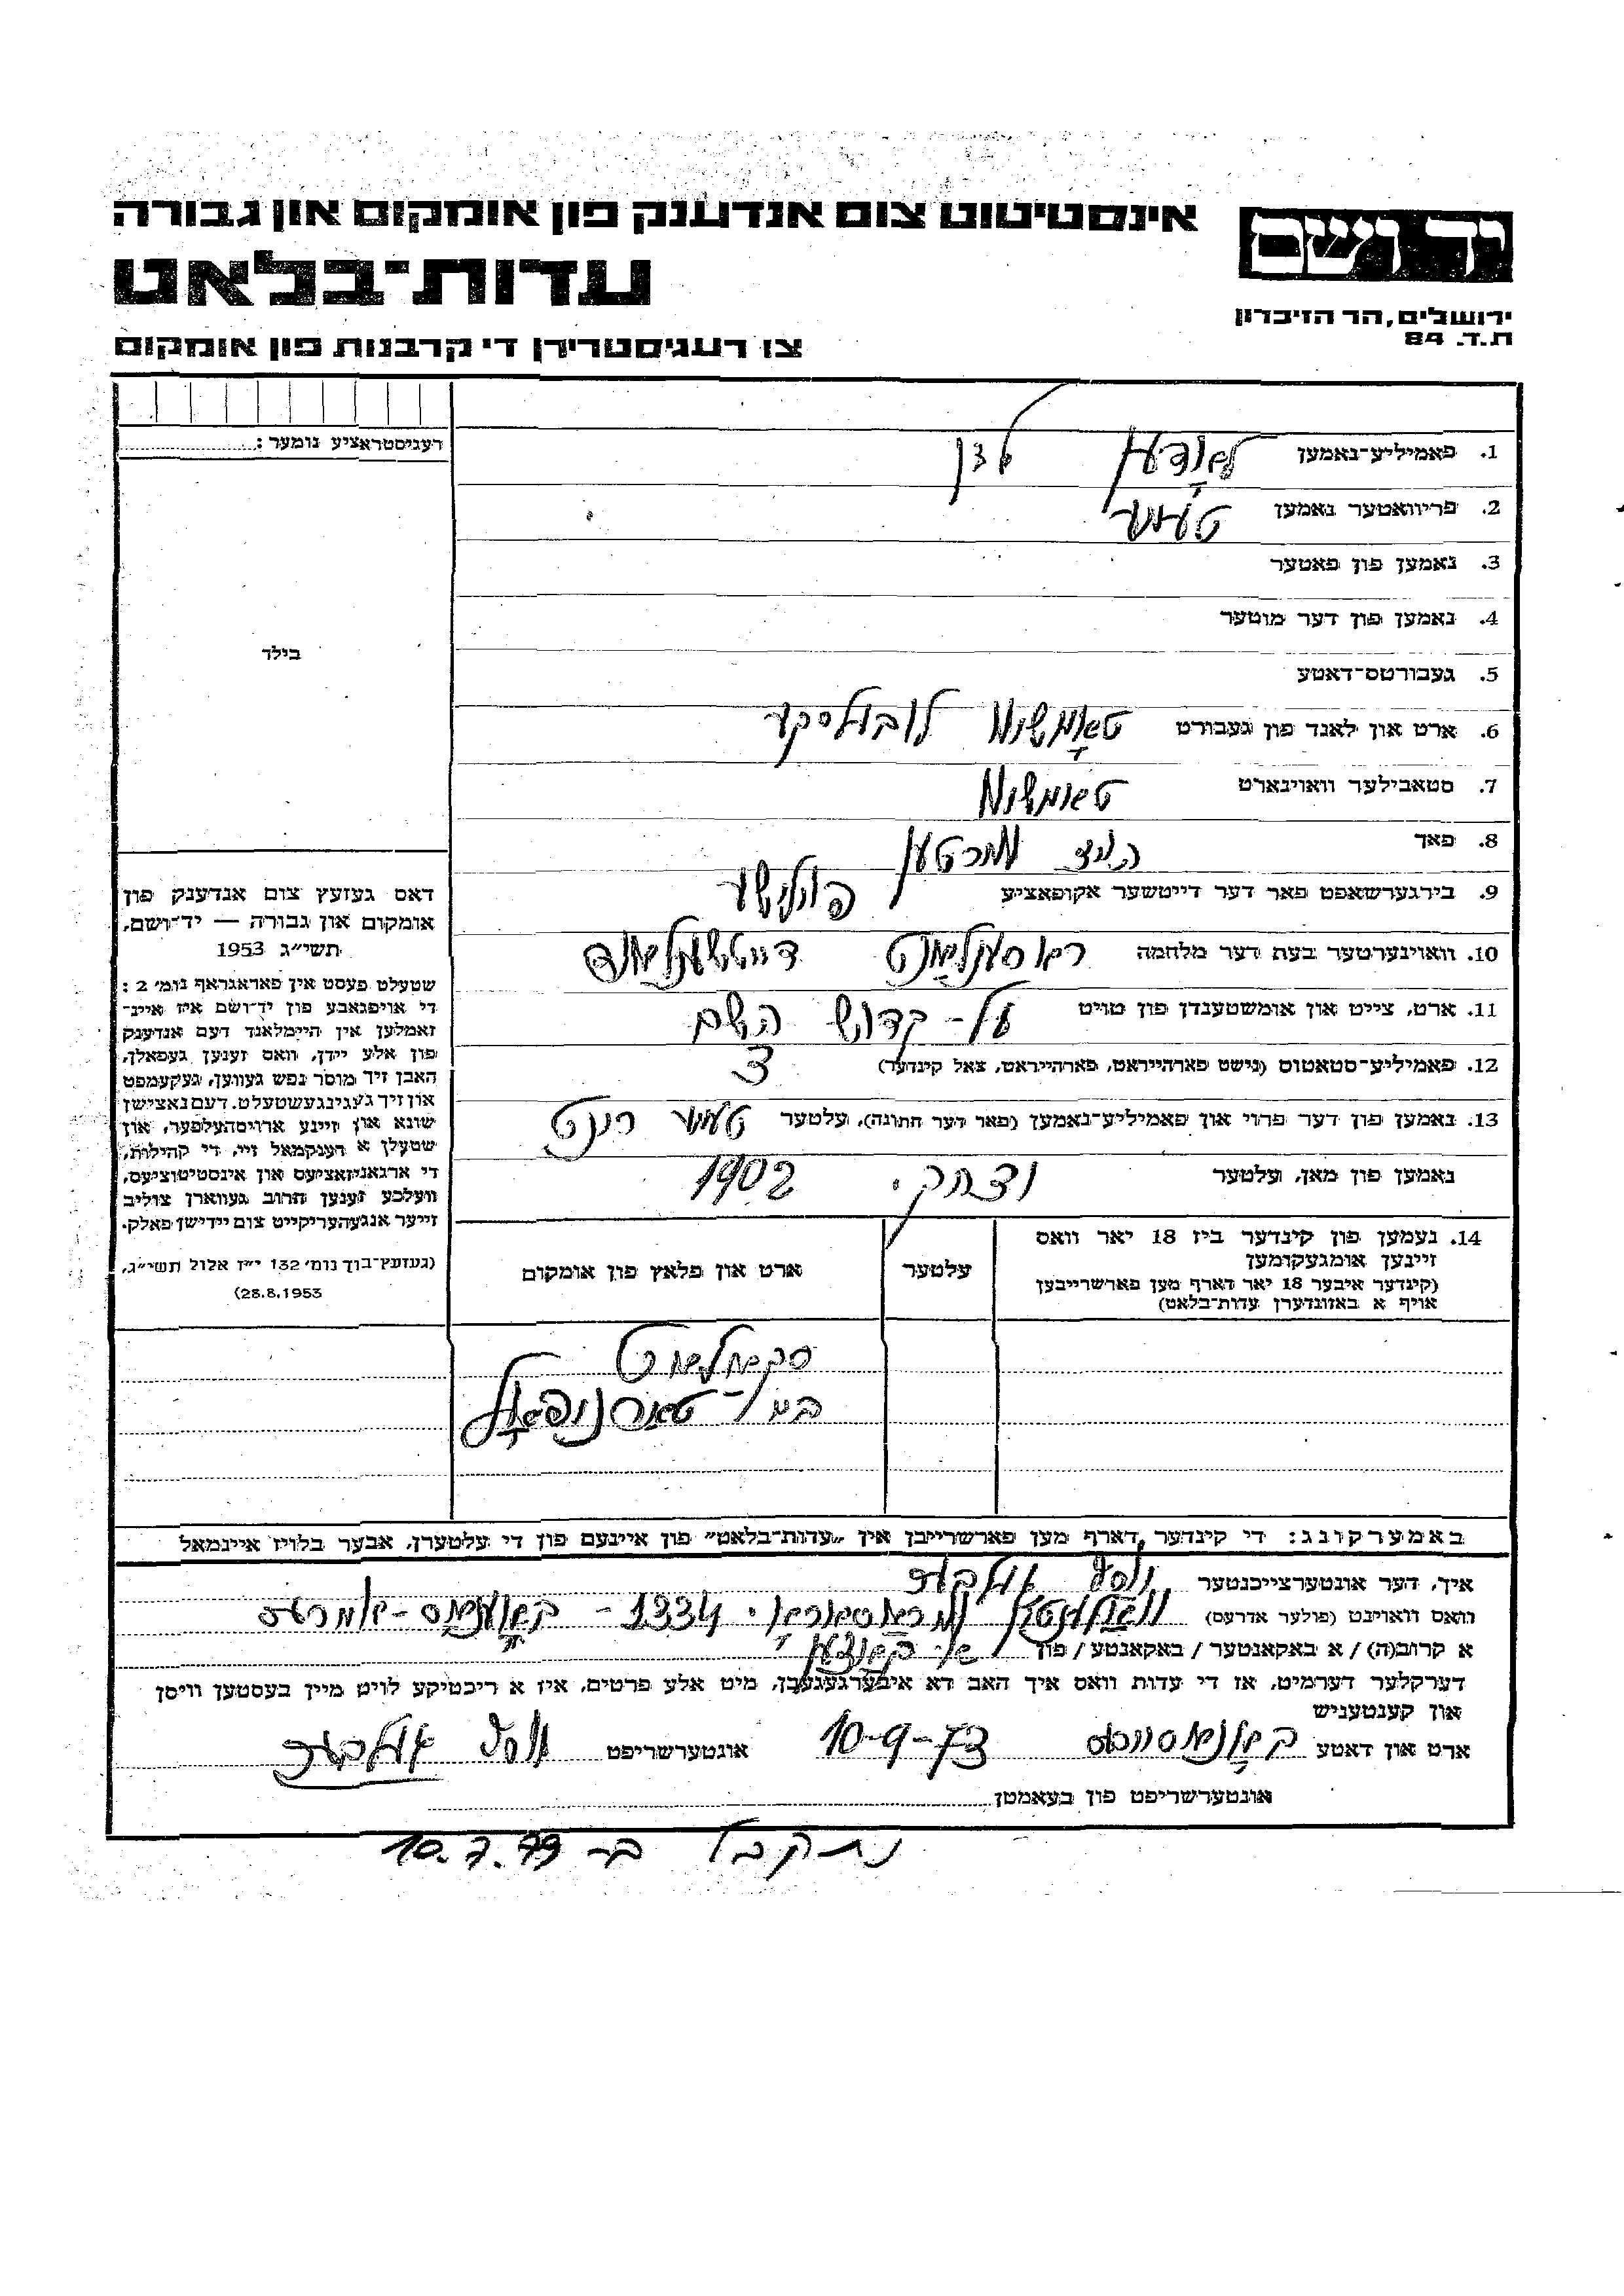 יד ושם
ירושלים, הר הזיכרון
ת.ד. 84
אינסטיטוט צום אנדענק פון אומקום און גבורה
עדות-בלאט
צו רעגיסטרירן די קרבנות פון אומקום
רעגיסטראציע נומער:
בילד
דאס געזעץ צום אנדענק פון
אומקום און גבורה — יד-ושם,
תשי״ג 1953
שטעלט פעסט אין פאראגראף נומ׳ 2:
די אויפגאבע פון יד-ושם איז איינ-
זאמלען אין היימלאנד דעם אנדענק
פון אלע יידן, וואס זענען געפאלן,
האבן זיך מוסר נפש געווען, געקעמפט
און זיך געגינגעשטעלט. דעם נאצישן
שונא און זיינע ארויסהעלפער, און
שטעלן א דענקמאל זיי, די קהילות,
די ארגאניזאציעס און אינסטיטוציעס,
וועלכע זענען חרוב געווארן צוליב
זייער אנגעהעריקייט צום יידישן פאלק.
(געזעץ-בוך נומ׳ 132 י״ז אלול תשי״ג,
28.8.1953)
1. פאמיליע-נאמען
2. פריוואטער נאמען
3. נאמען פון פאטער
4. נאמען פון דער מוטער
5. געבורטס-דאטע
6. ארט און לאנד פון געבורט טאמאשוו לובולסקי
7. סטאבילער וואוינארט טאמאשוו
8. פאך
9. בירגערשאפט פאר דער דייטשער אקופאציע פוילישע
10. וואוינערטער בעת דער מלחמה רוסענלאנט דייטשענלאנד
11. ארט, צייט און אומשטענדן פון טויט על-קדוש השם
12. פאמיליע-סטאטוס (נישט פארהייראט, פארהייראט, צאל קינדער) 3
13. נאמען פון דער פרוי און פאמיליע-נאמען (פאר דער חתונה), עלטער
נאמען פון מאן, עלטער יצחק. 1902
14. נעמען פון קינדער ביז 18 יאר וואס
זיינען אומגעקומען
(קינדער איבער 18 יאר דארף מען פארשרייבען
אויף א באזונדערן עדות-בלאט)
עלטער
ארט און פלאץ פון אומקום
סקאלאט
ביי-טארנופאל
באמערקונג: די קינדער דארף מען פארשרייבן אין „עדות-בלאט״ פון איינעם פון די עלטערן, אבער בלויז איינמאל
איך, דער אונטערצייכנטער
וואס וואוינט (פולער אדרעס) 1334 -
א קרוב(ה) / א באקאנטער / באקאנטע / פון
דערקלער דערמיט, אז די עדות וואס איך האב דא איבערגעגעבן, מיט אלע פרטים, איז א ריכטיקע לויט מיין בעסטען וויסן
און קענטעניש
ארט און דאטע 10-9-73 אונטערשריפט
אונטערשריפט פון בעאמטן
נתקבל ב- 10.7.79